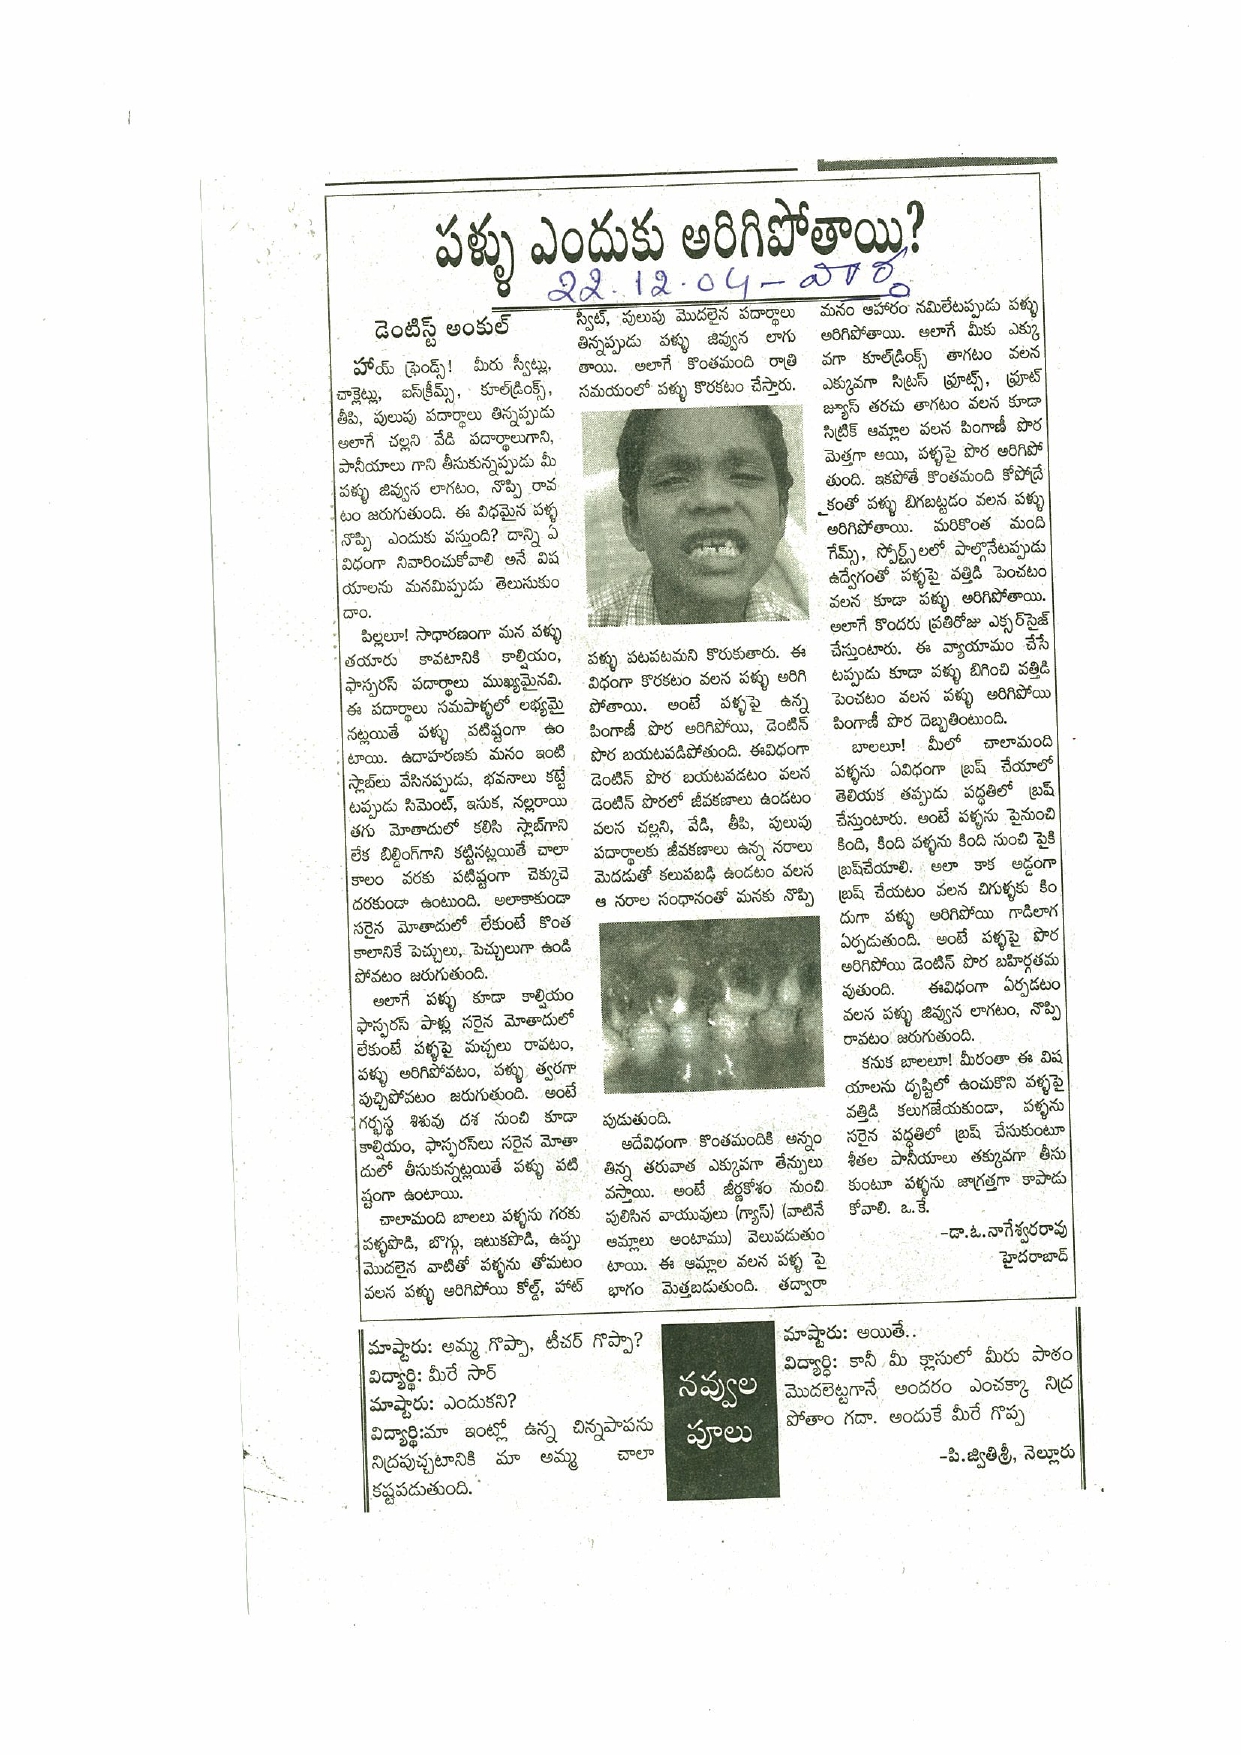 పళ్ళు ఎందుకు అరిగిపోతాయి?
22.12.04 - వార్త
డెంటిస్ట్ అంకుల్
హాయ్ ఫ్రెండ్స్! మీరు స్వీట్లు,
చాక్లెట్లు, ఐస్‌క్రీమ్స్, కూల్‌డ్రింక్స్,
తీపి, పులుపు పదార్థాలు తిన్నప్పుడు
అలాగే చల్లని వేడి పదార్థాలుగాని,
పానీయాలు గాని తీసుకున్నప్పుడు మీ
పళ్ళు జివ్వున లాగటం, నొప్పి రావ
టం జరుగుతుంది. ఈ విధమైన పళ్ళ
నొప్పి ఎందుకు వస్తుంది? దాన్ని ఏ
విధంగా నివారించుకోవాలి అనే విష
యాలను మనమిప్పుడు తెలుసుకుం
దాం.
పిల్లలూ! సాధారణంగా మన పళ్ళు
తయారు కావటానికి కాల్షియం,
ఫాస్ఫరస్ పదార్థాలు ముఖ్యమైనవి.
ఈ పదార్థాలు సమపాళ్ళలో లభ్యమై
నట్లయితే పళ్ళు పటిష్టంగా ఉం
టాయి. ఉదాహరణకు మనం ఇంటి
స్లాబ్‌లు వేసినప్పుడు, భవనాలు కట్టే
టప్పుడు సిమెంట్, ఇసుక, నల్లరాయి
తగు మోతాదులో కలిసి స్లాబ్‌గాని
లేక బిల్డింగ్‌గాని కట్టినట్లయితే చాలా
కాలం వరకు పటిష్టంగా చెక్కుచె
దరకుండా ఉంటుంది. అలాకాకుండా
సరైన మోతాదులో లేకుంటే కొంత
కాలానికే పెచ్చులు, పెచ్చులుగా ఉండి
పోవటం జరుగుతుంది.
అలాగే పళ్ళు కూడా కాల్షియం
ఫాస్ఫరస్ పాళ్లు సరైన మోతాదులో
లేకుంటే పళ్ళపై మచ్చలు రావటం,
పళ్ళు అరిగిపోవటం, పళ్ళు త్వరగా
పుచ్చిపోవటం జరుగుతుంది. అంటే
గర్భస్థ శిశువు దశ నుంచి కూడా
కాల్షియం, ఫాస్ఫరస్‌లు సరైన మోతా
దులో తీసుకున్నట్లయితే పళ్ళు పటి
ష్టంగా ఉంటాయి.
చాలామంది బాలలు పళ్ళను గరకు
పళ్ళపొడి, బొగ్గు, ఇటుకపొడి, ఉప్పు
మొదలైన వాటితో పళ్ళను తోమటం
వలన పళ్ళు అరిగిపోయి కోల్డ్, హాట్
స్వీట్, పులుపు మొదలైన పదార్థాలు
తిన్నప్పుడు పళ్ళు జివ్వున లాగు
తాయి. అలాగే కొంతమంది రాత్రి
సమయంలో పళ్ళు కొరకటం చేస్తారు.
పళ్ళు పటపటమని కొరుకుతారు. ఈ
విధంగా కొరకటం వలన పళ్ళు అరిగి
పోతాయి. అంటే పళ్ళపై ఉన్న
పింగాణీ పొర అరిగిపోయి, డెంటిన్
పొర బయటపడిపోతుంది. ఈవిధంగా
డెంటిన్ పొర బయటపడటం వలన
డెంటిన్ పొరలో జీవకణాలు ఉండటం
వలన చల్లని, వేడి, తీపి, పులుపు
పదార్థాలకు జీవకణాలు ఉన్న నరాలు
మెదడుతో కలుపబడి ఉండటం వలన
ఆ నరాల సంధానంతో మనకు నొప్పి
పుడుతుంది.
అదేవిధంగా కొంతమందికి అన్నం
తిన్న తరువాత ఎక్కువగా తేన్పులు
వస్తాయి. అంటే జీర్ణకోశం నుంచి
పులిసిన వాయువులు (గ్యాస్) (వాటినే
ఆమ్లాలు అంటాము) వెలువడుతుం
టాయి. ఈ ఆమ్లాల వలన పళ్ళ పై
భాగం మెత్తబడుతుంది. తద్వారా
మనం ఆహారం నమిలేటప్పుడు పళ్ళు
అరిగిపోతాయి. ఆలాగే మీకు ఎక్కు
వగా కూల్‌డ్రింక్స్ తాగటం వలన
ఎక్కువగా సిట్రస్ ఫ్రూట్స్, ఫ్రూట్
జ్యూస్ తరచు తాగటం వలన కూడా
సిట్రిక్ ఆమ్లాల వలన పింగాణీ పొర
మెత్తగా అయి, పళ్ళపై పొర అరిగిపో
తుంది. ఇకపోతే కొంతమంది కోపోద్రే
కంతో పళ్ళు బిగబట్టడం వలన పళ్ళు
అరిగిపోతాయి. మరికొంత మంది
గేమ్స్, స్పోర్ట్స్‌లలో పాల్గొనేటప్పుడు
ఉద్వేగంతో పళ్ళపై వత్తిడి పెంచటం
వలన కూడా పళ్ళు అరిగిపోతాయి.
అలాగే కొందరు ప్రతిరోజు ఎక్సర్‌సైజ్
చేస్తుంటారు. ఈ వ్యాయామం చేసే
టప్పుడు కూడా పళ్ళు బిగించి వత్తిడి
పెంచటం వలన పళ్ళు అరిగిపోయి
పింగాణీ పొర దెబ్బతింటుంది.
బాలలూ! మీలో చాలామంది
పళ్ళను ఏవిధంగా బ్రష్ చేయాలో
తెలియక తప్పుడు పద్ధతిలో బ్రష్
చేస్తుంటారు. అంటే పళ్ళను పైనుంచి
కింది, కింది పళ్ళను కింది నుంచి పైకి
బ్రష్‌చేయాలి. అలా కాక అడ్డంగా
బ్రష్ చేయటం వలన చిగుళ్ళకు కిం
దుగా పళ్ళు అరిగిపోయి గాడిలాగ
ఏర్పడుతుంది. అంటే పళ్ళపై పొర
అరిగిపోయి డెంటిన్ పొర బహిర్గతమ
వుతుంది. ఈవిధంగా ఏర్పడటం
వలన పళ్ళు జివ్వున లాగటం, నొప్పి
రావటం జరుగుతుంది.
కనుక బాలలూ! మీరంతా ఈ విష
యాలను దృష్టిలో ఉంచుకొని పళ్ళపై
వత్తిడి కలుగజేయకుండా, పళ్ళను
సరైన పద్ధతిలో బ్రష్ చేసుకుంటూ
శీతల పానీయాలు తక్కువగా తీసు
కుంటూ పళ్ళను జాగ్రత్తగా కాపాడు
కోవాలి. ఒ.కే.
-డా.ఓ.నాగేశ్వరరావు
హైదరాబాద్
మాష్టారు: అమ్మ గొప్పా, టీచర్ గొప్పా?
విద్యార్థి: మీరే సార్
మాష్టారు: ఎందుకని?
విద్యార్థి:మా ఇంట్లో ఉన్న చిన్నపాపను
నిద్రపుచ్చటానికి మా అమ్మ చాలా
కష్టపడుతుంది.
నవ్వుల
పూలు
మాష్టారు: అయితే..
విద్యార్థి: కానీ మీ క్లాసులో మీరు పాఠం
మొదలెట్టగానే అందరం ఎంచక్కా నిద్ర
పోతాం గదా. అందుకే మీరే గొప్ప
-పి.జ్వితిశ్రీ, నెల్లూరు